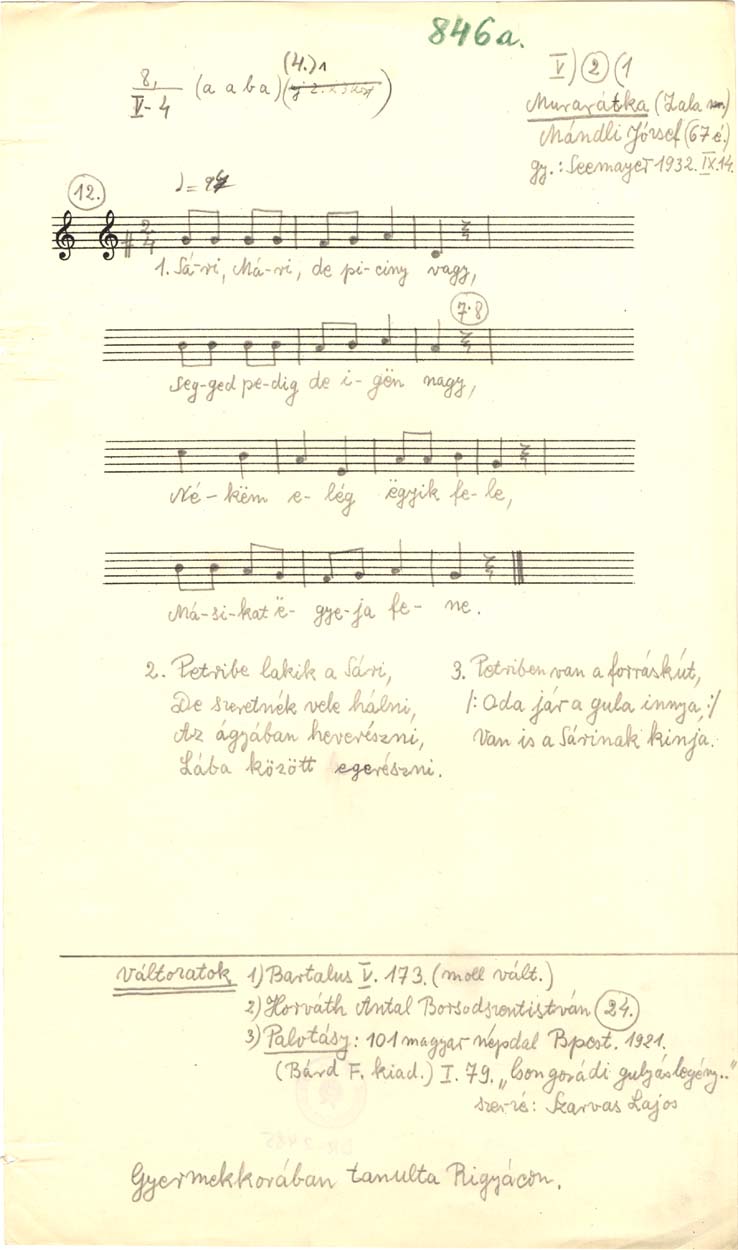 846a.
8, (a a b a) (4.) 1
V-4
V) 2 (1
Murarátka (Zala m.)
Mándli József (67 é.)
gy.: Seemayer 1932. IX. 14.
12.
2/4
1. Sá-ri, Má-ri, de pi-ciny vagy,
7.8
Seg-ged pe-dig de i-gën nagy,
Né-këm e-lég ëgyik fe-le,
Má-si-kat ë-gye-ja fe-ne.
2. Petribe lakik a Sári,
De szeretnék vele hálni,
Az ágyában heverészni,
Lába között egerészni.
3. Petriben van a forráskút,
/: Oda jár a gula innya :/
Van is a Sárinak kinja.
Változatok 1) Bartalus V. 173. (moll vált.)
2) Horváth Antal Borsodszentistván 24.
3) Palotásy: 101 magyar népdal Bpest. 1921.
(Bárd F. kiad.) I. 79. „Csongorádi gulyáslegény.."
szerzé: Szarvas Lajos
Gyermekkorában tanulta Rigyácon.